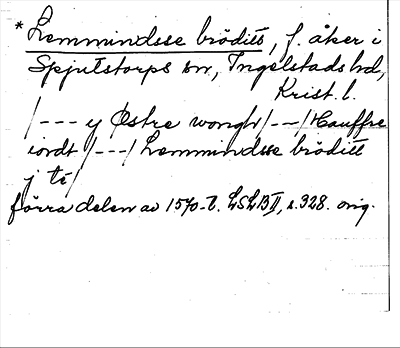 * Lemmindsse bröditt, f. åker i
Spjutstorps sn, Ingelstads hd,
Krist. l.
/--- y Østre wongh /---/ Hauffre
iordt /---/ Lemmindsse bröditt
j ti/
förra delen av 1570-t. LSLB II, s. 328. orig.